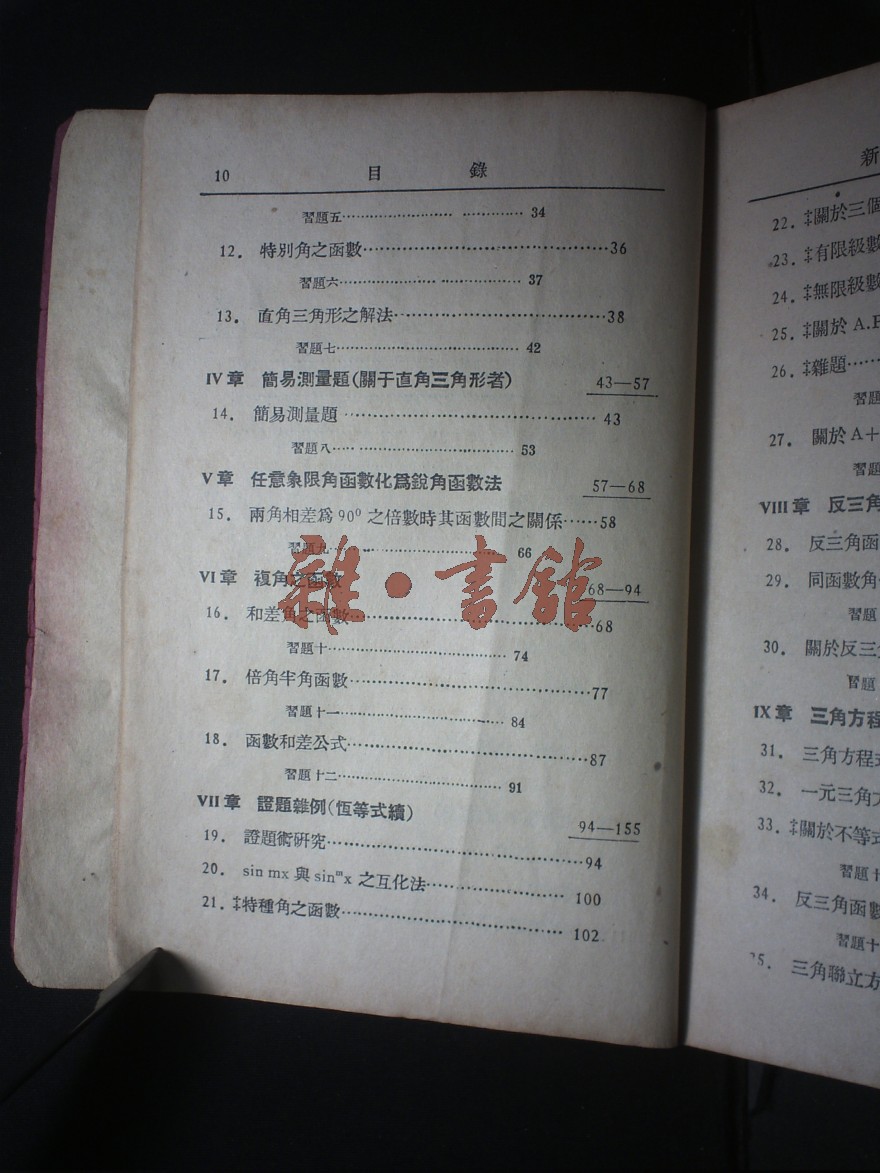 10 目 錄
習題五 34
12. 特別角之函數 36
習題六 37
13. 直角三角形之解法 38
習題七 42
IV章 簡易測量題(關于直角三角形者) 43—57
14. 簡易測量題 43
習題八 53
V章 任意象限角函數化爲銳角函數法 57—68
15. 兩角相差爲90⁰之倍數時其函數間之關係 58
習題九 66
VI章 複角之函數 68—94
16. 和差角之函數 68
習題十 74
17. 倍角半角函數 77
習題十一 84
18. 函數和差公式 87
習題十二 91
VII章 證題雜例(恆等式續) 94—155
19. 證題術硏究 94
20. sin mx 與 sinᵐx 之互化法 100
21. ‡特種角之函數 102
雜·書館
新
22. ‡關於三個
23. ‡有限級數
24. ‡無限級數
25. ‡關於 A.
26. ‡雜題
習題
27. 關於A+
習題
VIII章 反三角
28. 反三角函
29. 同函數角
習題
30. 關於反三
習題
IX章 三角方程
31. 三角方程式
32. 一元三角
33. ‡關於不等式
習題十
34. 反三角函數
習題十
35. 三角聯立方